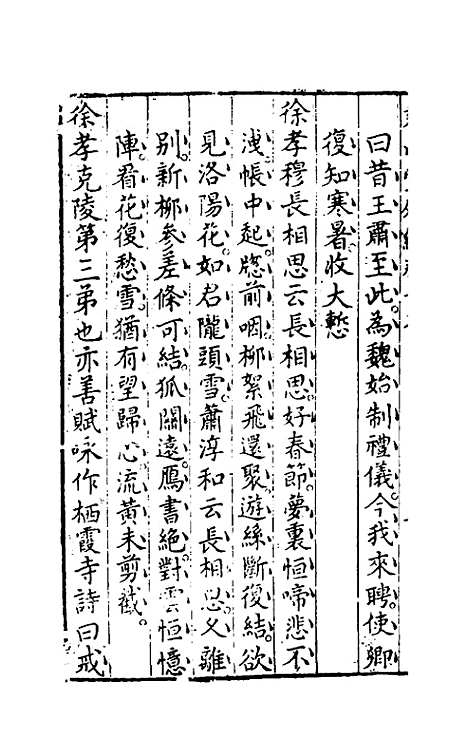 曰昔王肅至此為魏始制禮儀今我來聘使卿
復知寒暑收大慙
徐孝穆長相思云長相思好春節夢裏恒啼悲不
洩帳中起窓前咽柳絮飛還聚遊絲斷復結欲
見洛陽花如君隴頭雪蕭淳和云長相思久離
別新栁參差條可結狐關遠鴈書絕對雲恒憶
陣看花復愁雪猶有望歸心流黃未剪截
徐孝克陵第三弟也亦善賦咏作栖霞寺詩曰戒